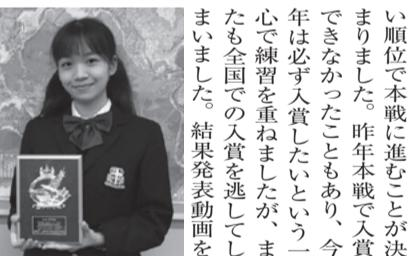 い順位で本戦に進むことが決
まりました。昨年本戦で入賞
できなかったこともあり、今
年は必ず入賞したいという一
心で練習を重ねましたが、ま
たも全国での入賞を逃してし
まいました。結果発表動画を